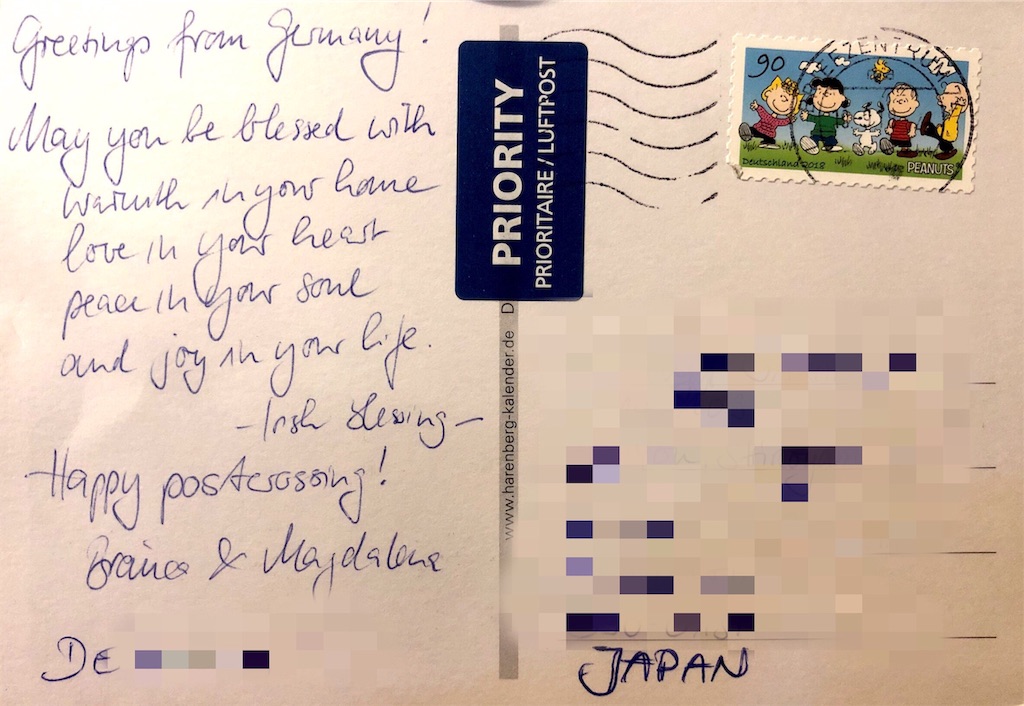 Greetings from Germany!
May you be blessed with
warmth in your home
love in your heart
peace in your soul
and joy in your life.
-Irish Blessing-
Happy postcrossing!
& Magdalena
DE
PRIORITY
PRIORITAIRE / LUFTPOST
www.harenberg-kalender.de D
ZENTRUM
90
Deutschland 2018
PEANUTS
JAPAN